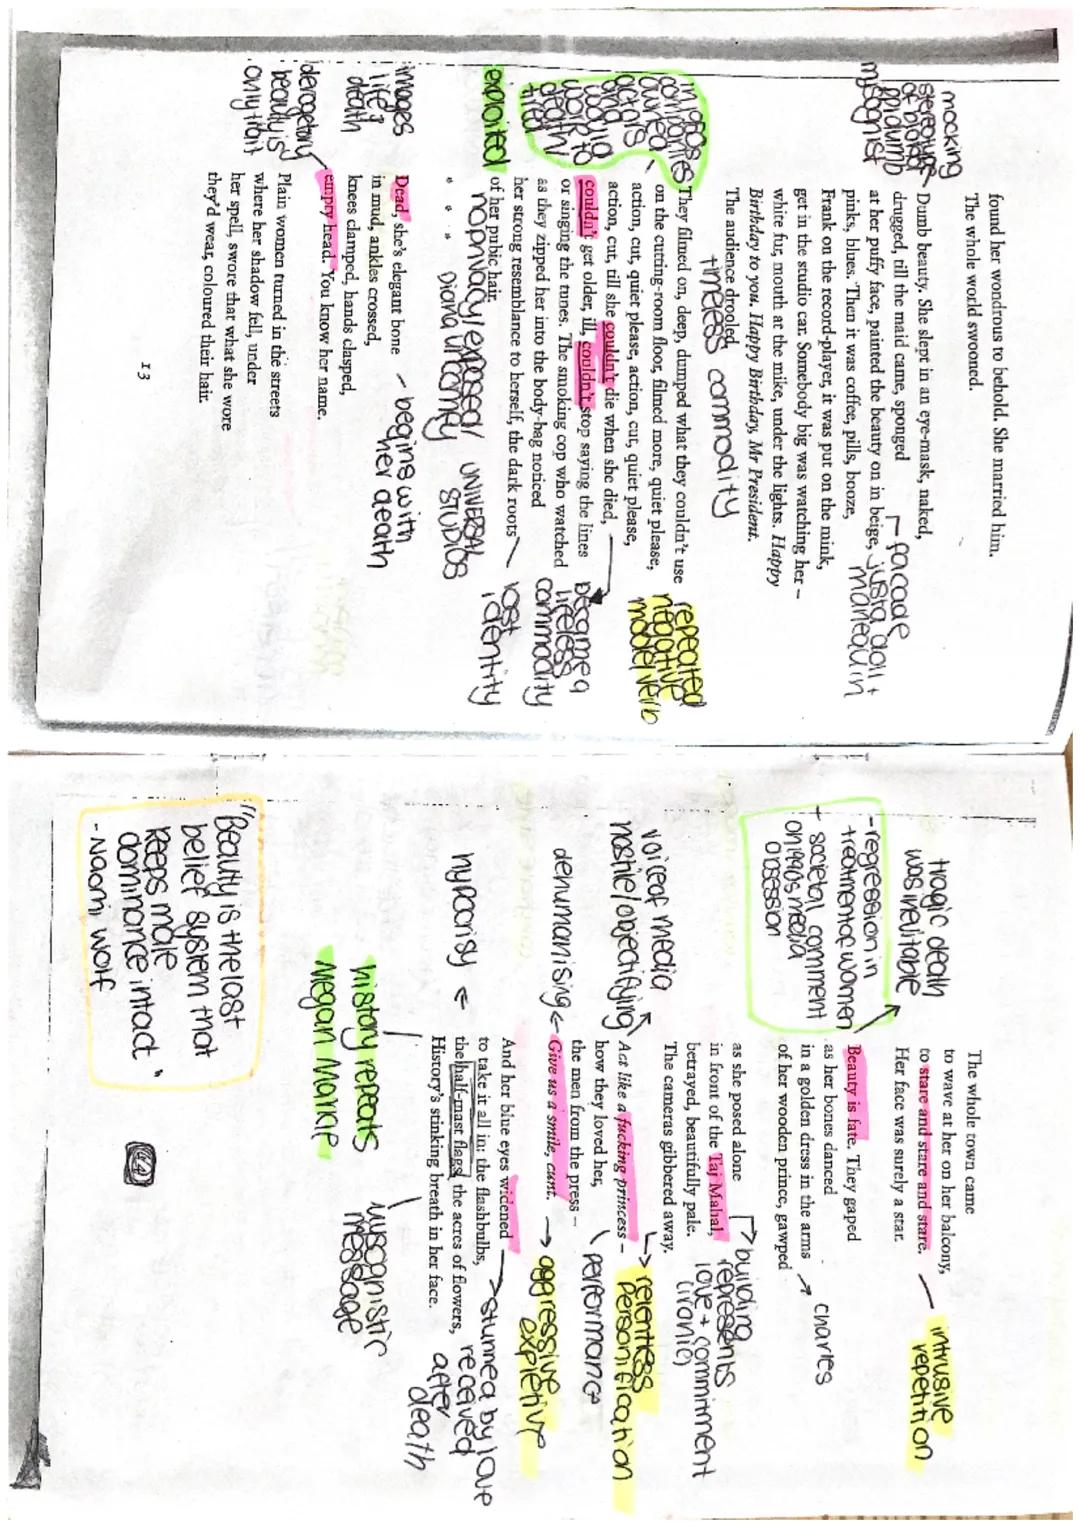 found her wondrous to behold. She married him.
The whole world swooned.
mocking
stereotype
of blonde
misogynist
Dumb beauty. She slept in an eye-mask, naked,
drugged, till the maid came, sponged
at her puffy face, painted the beauty on in beige,
pinks, blues. Then it was coffee, pills, booze,
Frank on the record-player, it was put on the mink,
get in the studio car. Somebody big was watching her –
white fur, mouth at the mike, under the lights. Happy
Birthday to you. Happy Birthday, Mr President.
The audience drooled.
facade
just a doll +
manequin
timeless commodity
They filmed on, deep, dumped what they couldn't use
on the cutting-room floor, filmed more, quiet please,
action, cut, quiet please, action, cut, quiet please,
action, cut, till she couldn't die when she died,
couldn't get older, ill, couldn't stop saying the lines
or singing the tunes. The smoking cop who watched
as they zipped her into the body-bag noticed
her strong resemblance to herself, the dark roots
of her pubic hair.
in 1950s
companies
owned
actors
and
would
work to
death/
tired
exploited
repeated
negative
model verb
became a
lifeless
commodity
lost
identity
no privacy/exposed/
UNIVERSAL
STUDIOS
Diana
Dead, she's elegant bone
in mud, ankles crossed,
knees clamped, hands clasped,
empty head. You know her name.
begins with
her death
images
life?
death
derogetory
beauty is
only trait
Plain women turned in the streets
where her shadow fell, under
her spell, swore that what she wore
they'd wear, coloured their hair.
13
The whole town came
to wave at her on her balcony,
to stare and stare and stare.
Her face was surely a star.
intrusive
repetition
tragic death
was inevitable
-regression in
treatment of women
+ societal comment
on 1990s media
obsession
Beauty is fate. They gaped
as her bones danced
in a golden dress in the arms
of her wooden prince, gawped
charles
as she posed alone
in front of the Taj Mahal,
betrayed, beautifully pale.
The cameras gibbered away.
building
represents
love + commitment
(ironic)
relentless
personification
voice of media
hostile/objectifying
Act like a fucking princess –
how they loved her,
the men from the press –
Give us a smile, cunt.
performance
dehumanising
aggressive
expletive
And her blue eyes widened
to take it all in: the flashbulbs,
the half-mast flags, the acres of flowers,
History's stinking breath in her face.
stunned by love
received
after
death
hypocrisy
history repeats
Megan Markle
misogynistic
message
"Beauty is the last
belief system that
keeps male
dominance intact"
-Naomi Wolf